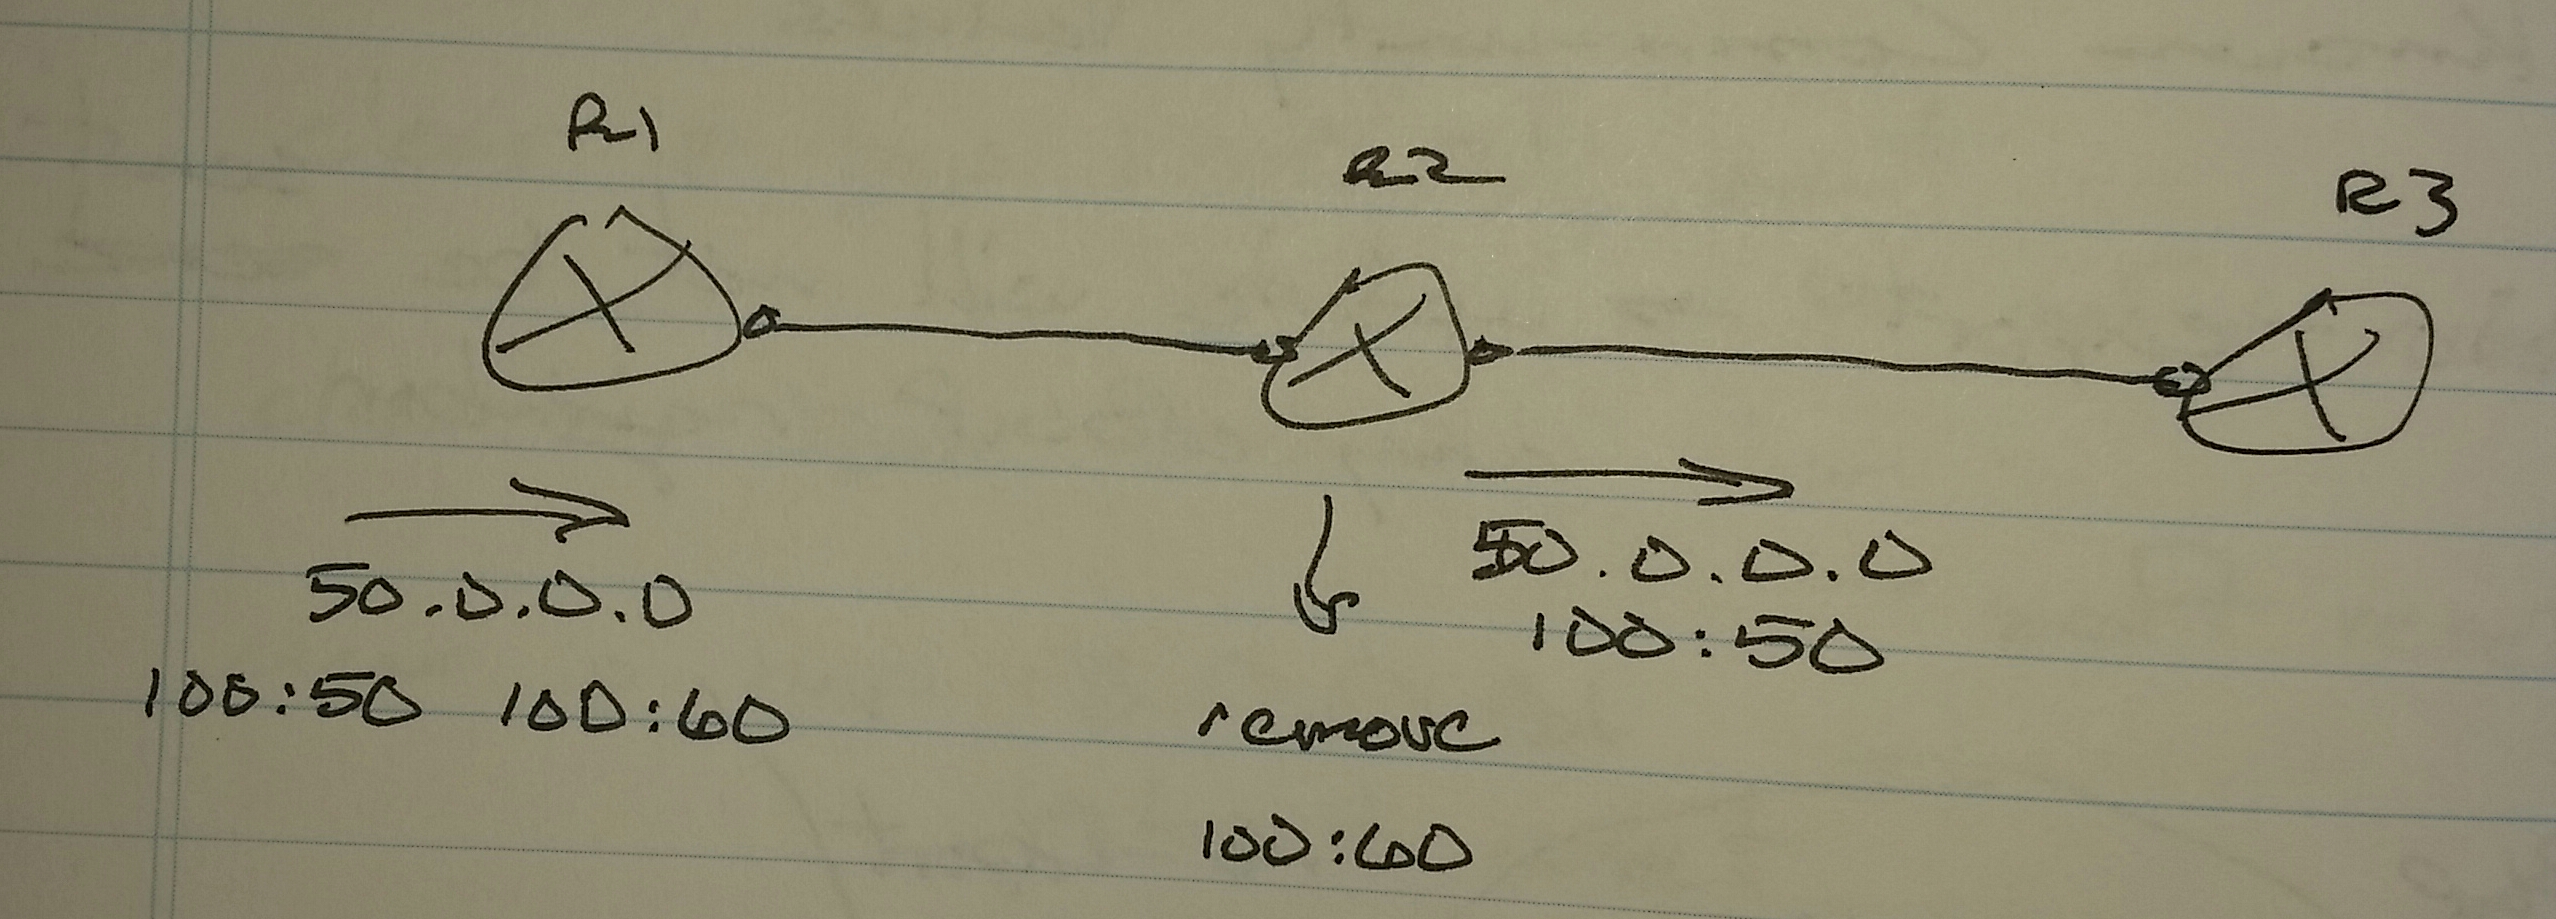 R1
R2
R3
50.0.0.0
100:50 100:60
remove
100:60
50.0.0.0
100:50